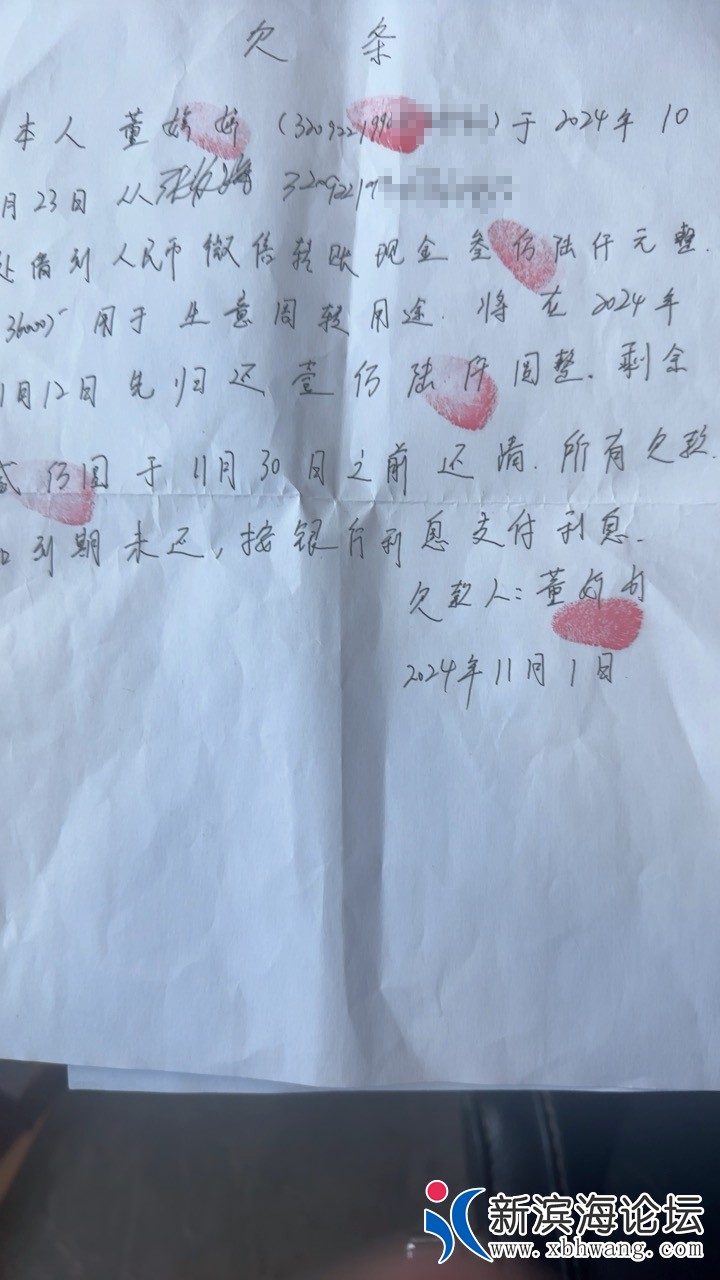 欠 条
本人 董娇娇 (320922199 ) 于 2024年 10
月 23日 从 32092219
处借到 人民币 微信转账 现金 叁仟陆仟元整.
36000 用于 生意周转用途. 将在 2024年
1月12日 先归还 壹仟陆仟圆整. 剩余
贰仟圆于 11月30日之前还清. 所有欠款.
到期未还, 按银行利息支付利息.
欠款人: 董娇娇
2024年11月1日
新滨海论坛
www.xbhwang.com